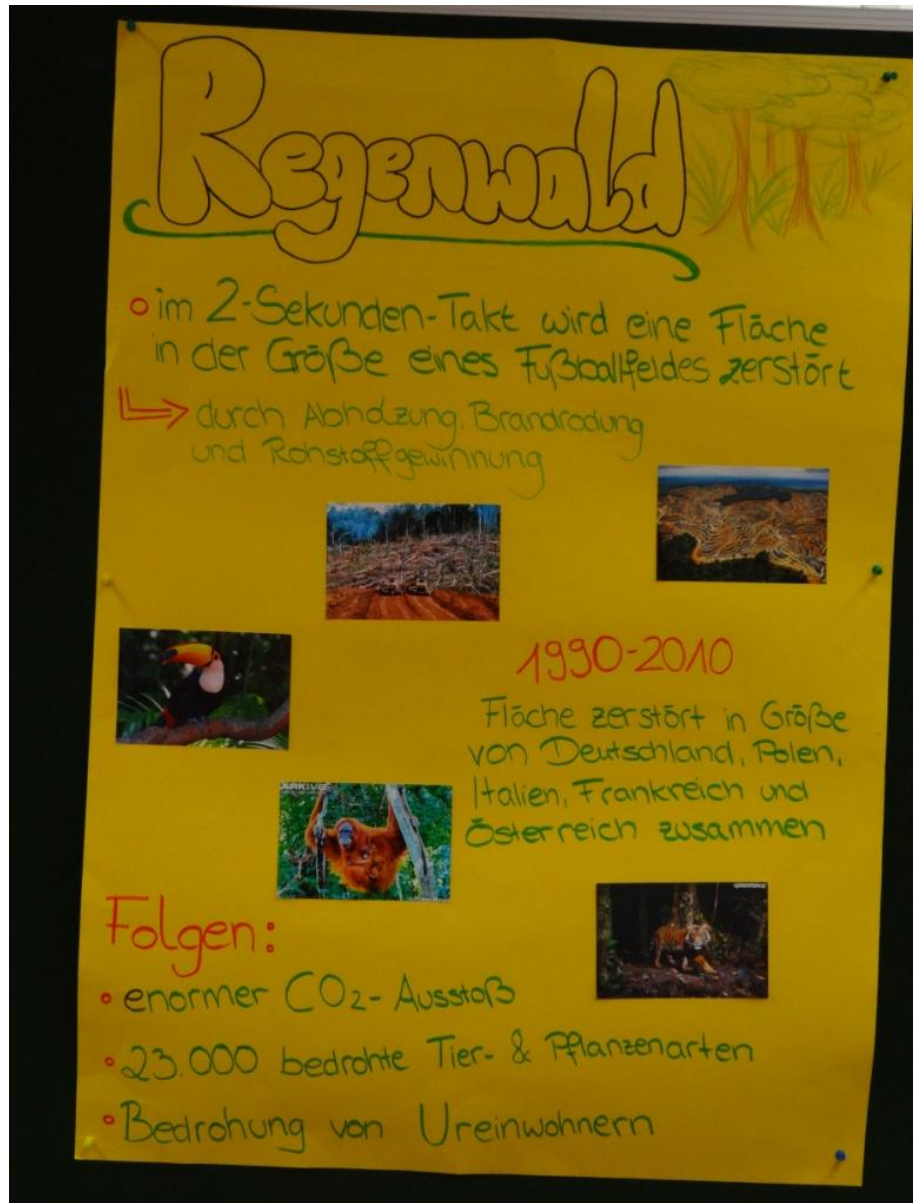 Regenwald
im 2-Sekunden-Takt wird eine Fläche
in der Größe eines Fußballfeldes zerstört
durch Abholzung, Brandrodung
und Rohstoffgewinnung
1990-2010
Fläche zerstört in Größe
von Deutschland, Polen,
Italien, Frankreich und
Österreich zusammen
ARKIVE
Folgen:
enormer CO₂-Ausstoß
23.000 bedrohte Tier- & Pflanzenarten
Bedrohung von Ureinwohnern